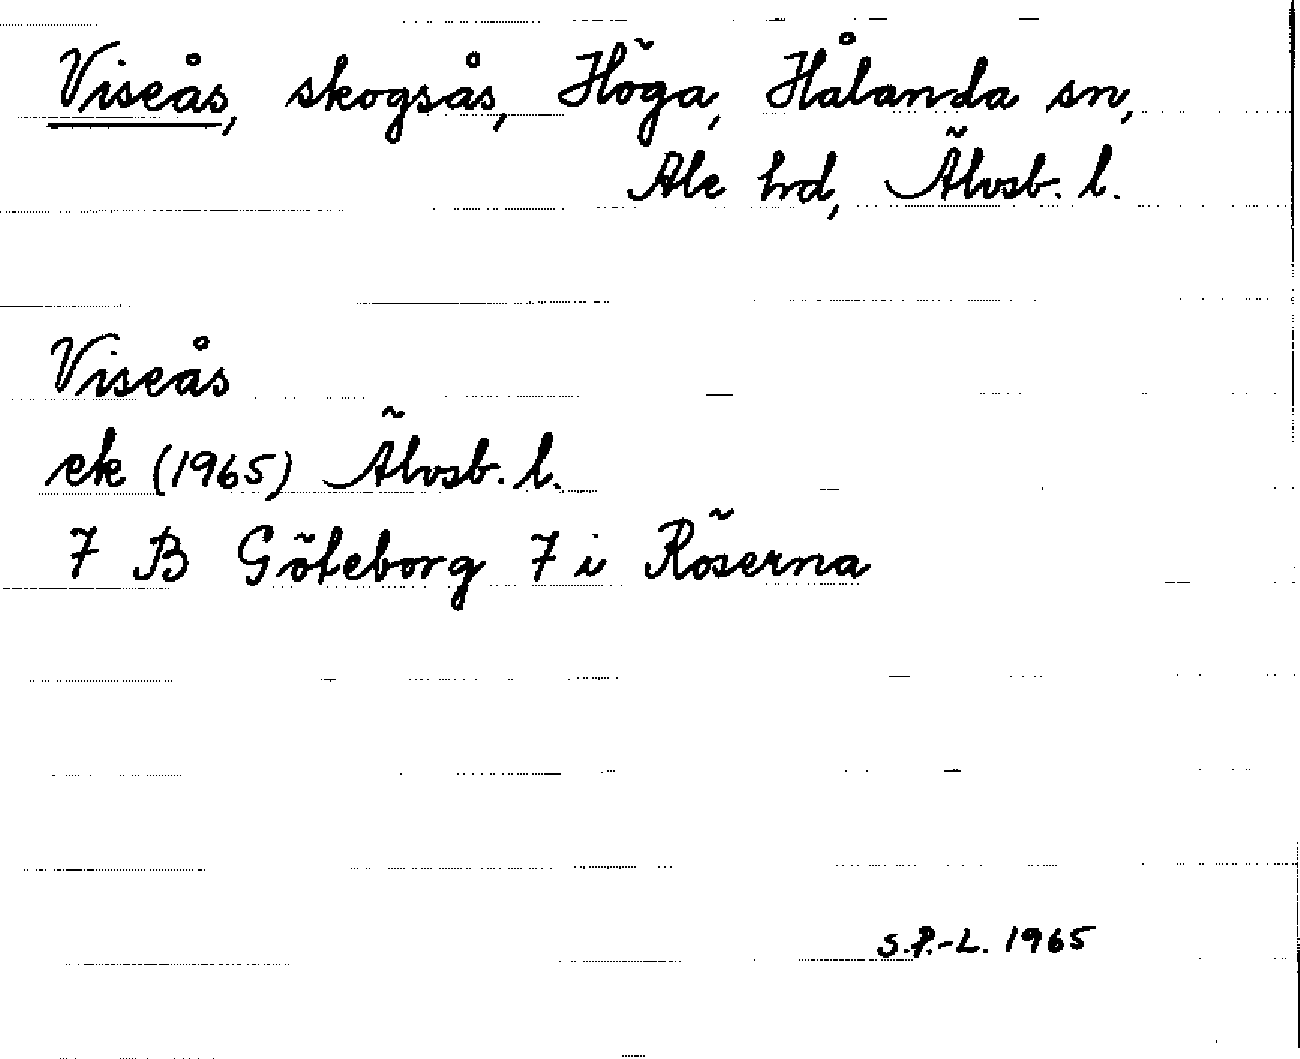 Viseås, skogsås, Höga, Hålanda sn,
Ale hd, Älvsb. l.
Viseås
ek (1965) Älvsb. l.
7 B Göteborg 7 i Röserna
S.P.-L. 1965